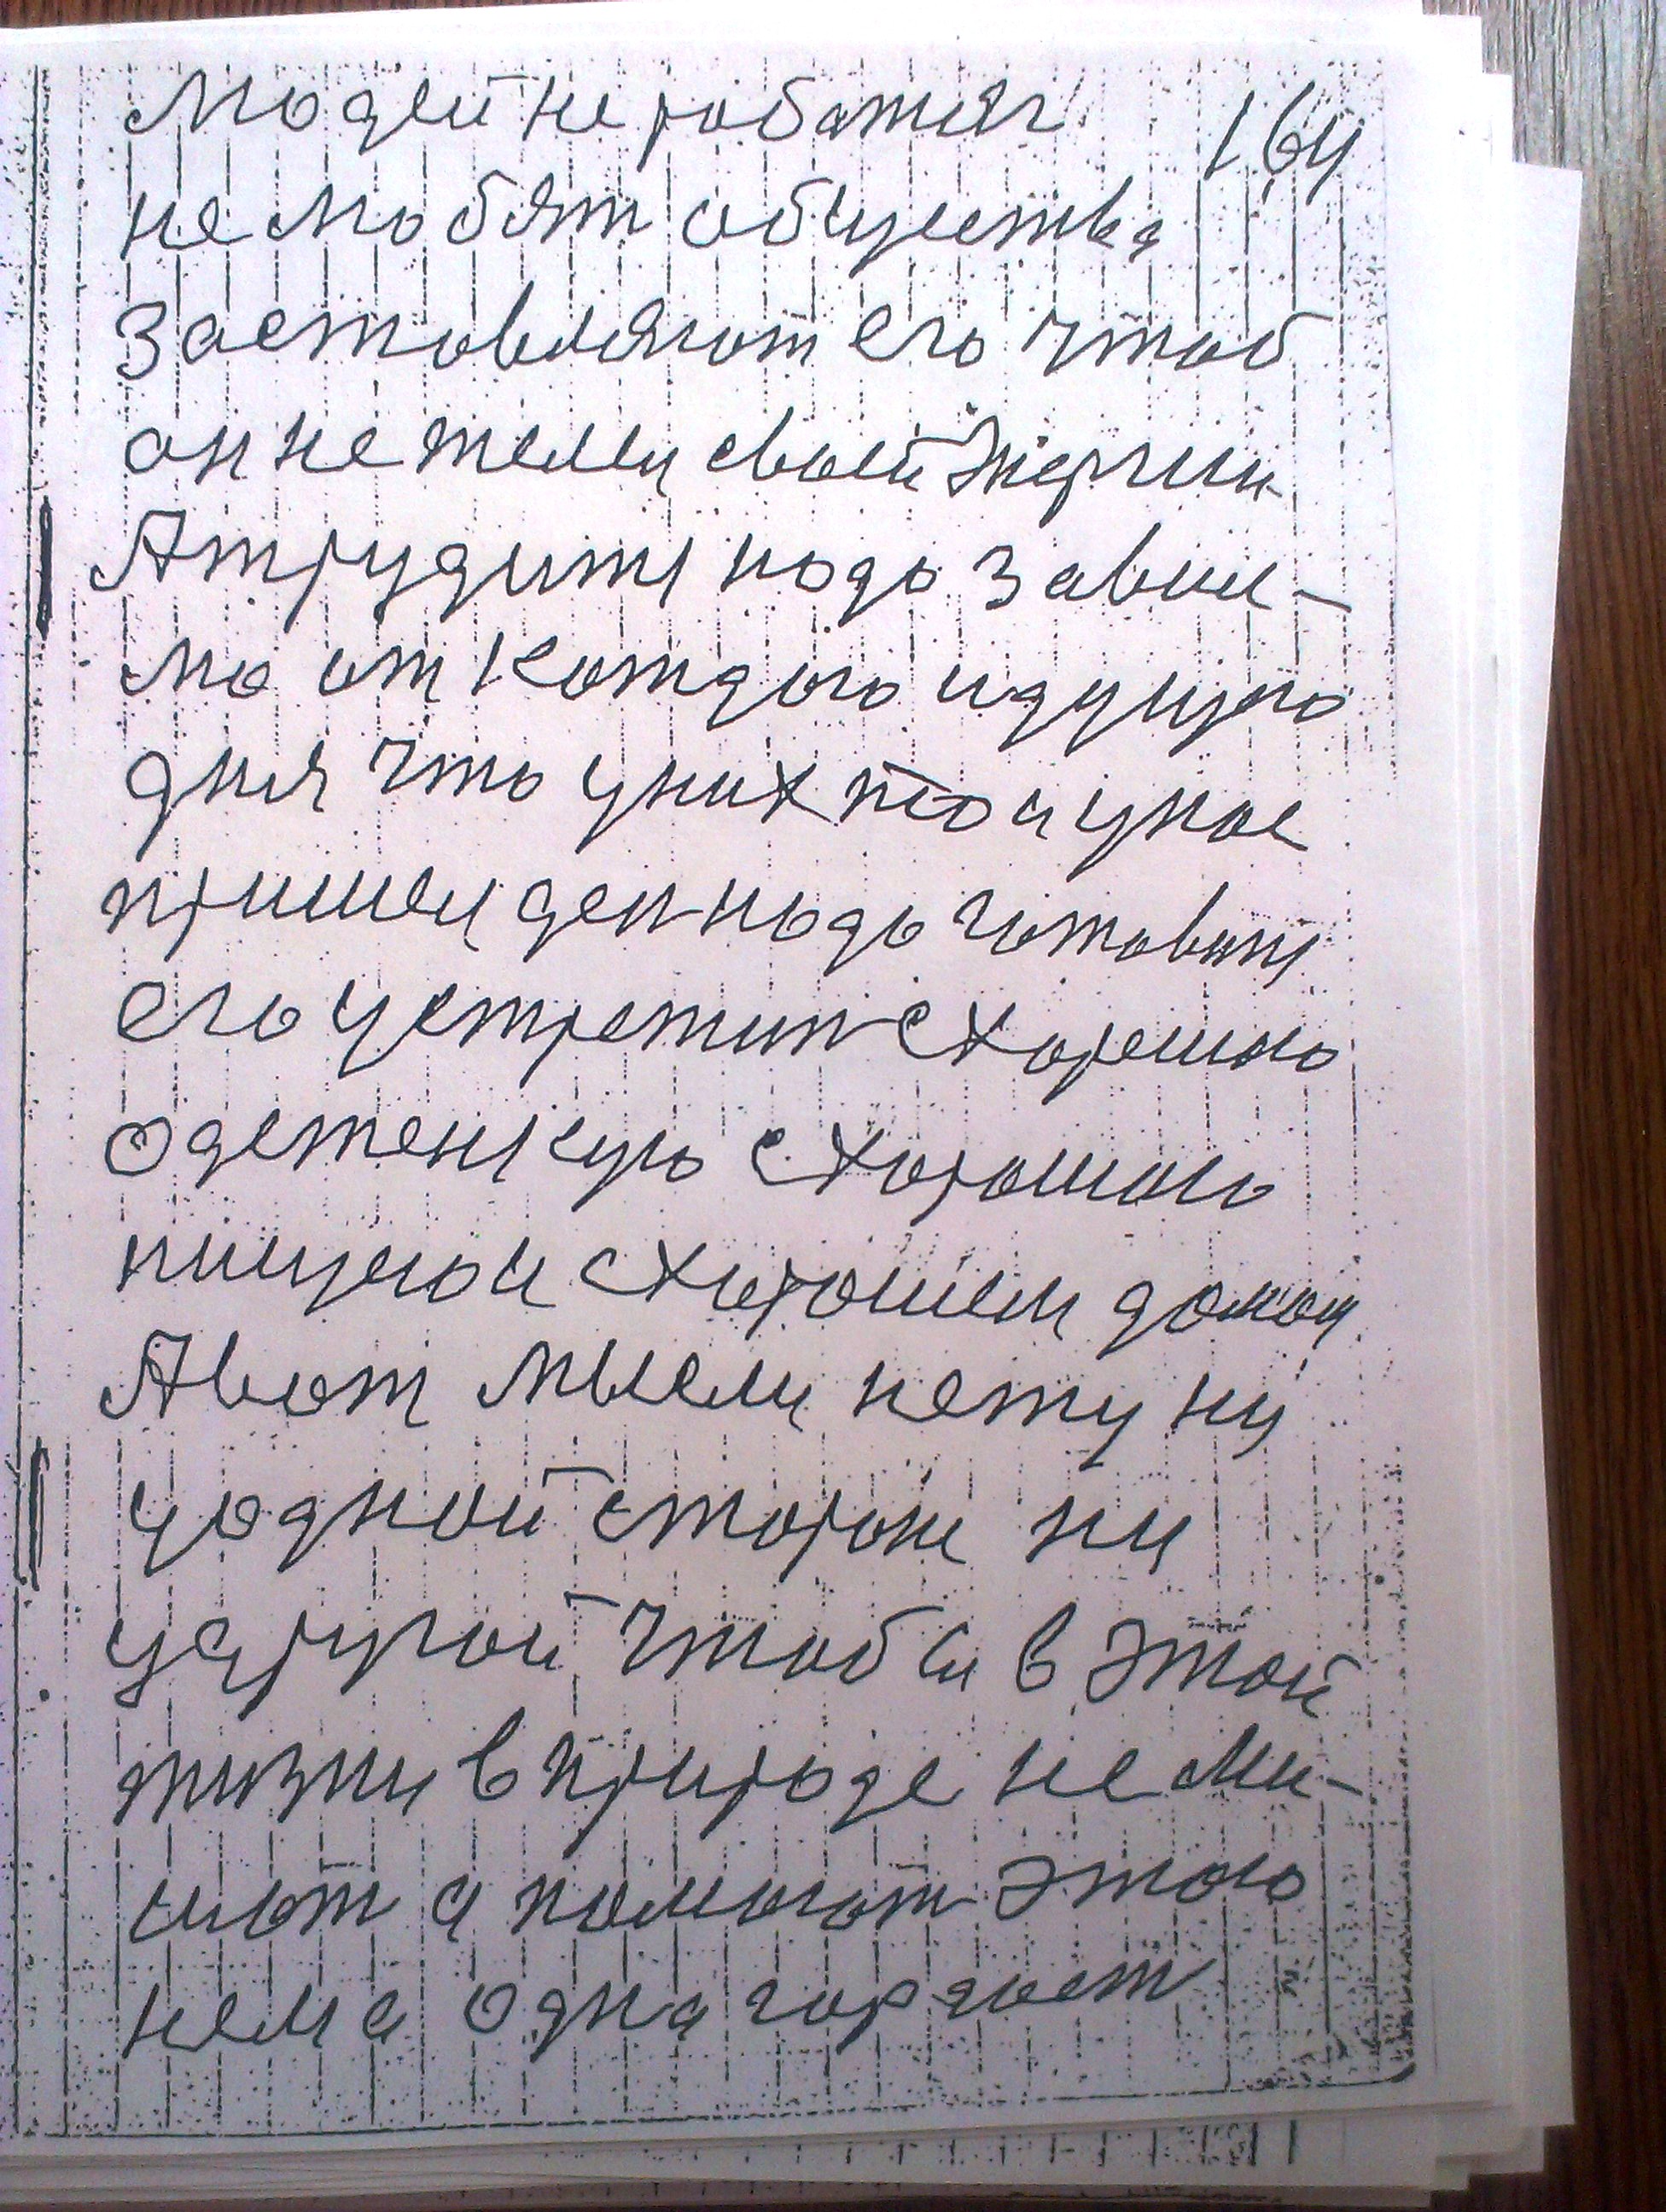 людей не работяг 164
не любят общества
заставляют его чтоб
он не жели своей жерли
А трудит надо зави-
мо от каждого идущего
дня что у них то и у нас
пришел ден надо готовит
его устретит с хорошаю
одеженкую с хорошаю
пищаю и с хорошем домом
А вот мысли нету ни
у одной стороне ни
у другой чтоб и в этой
жизни в природе не ми-
шат а помогат этаю
нема одна гордост